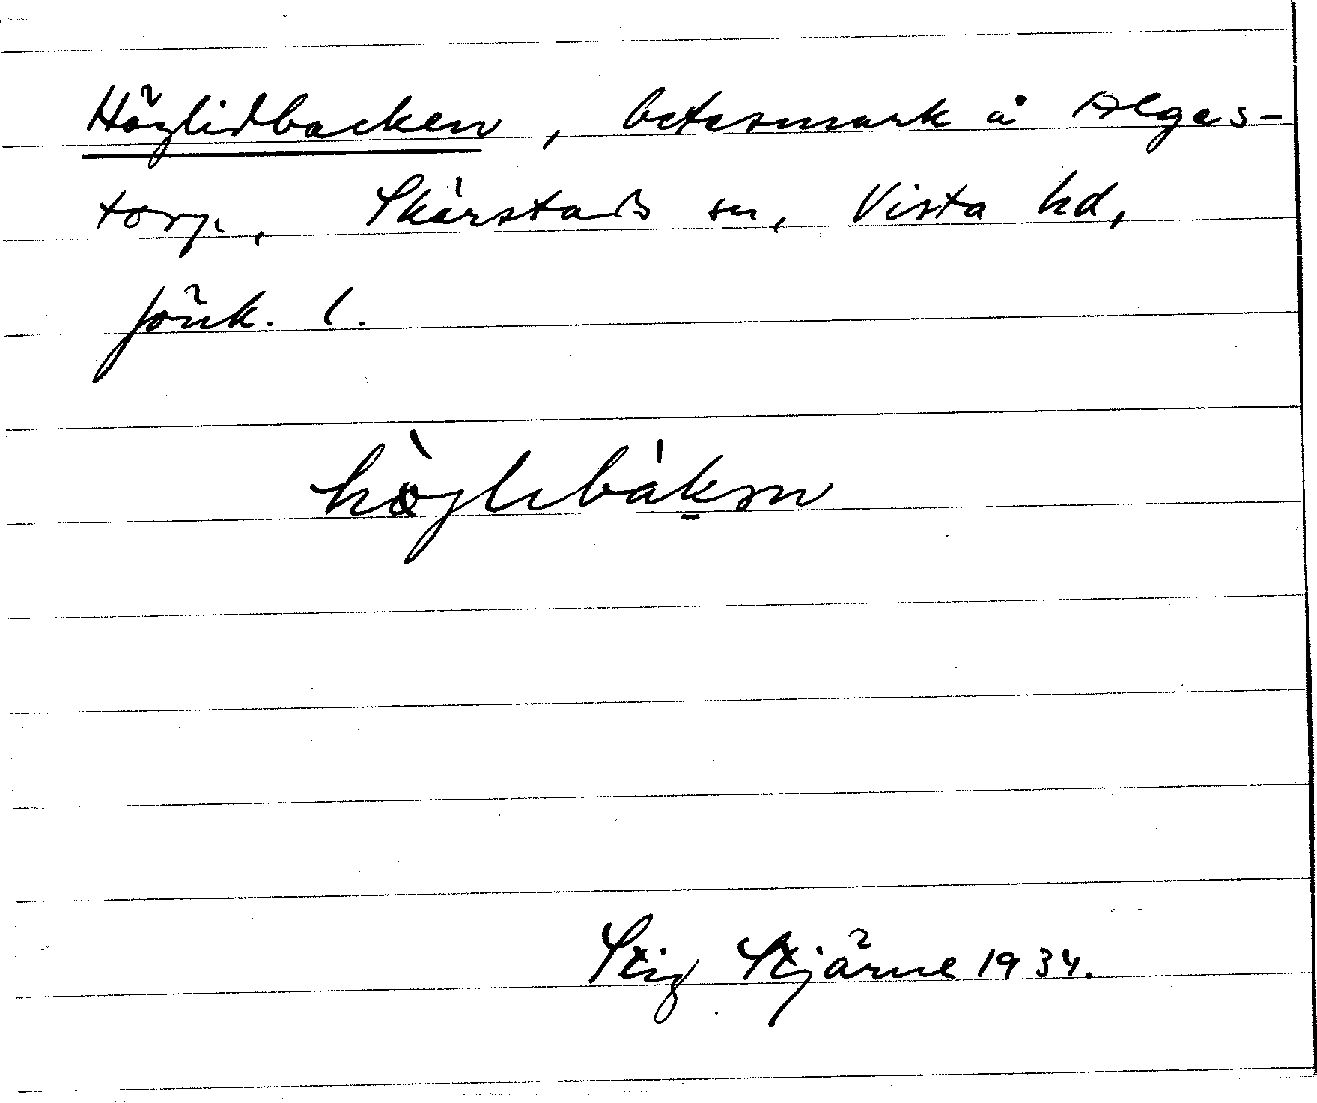 Höglidbacken, betesmark å Alges-
torp, Skärstads sn, Vista hd,
Jönk. l.
hø̀glibákən
Stig Stjärne 1934.